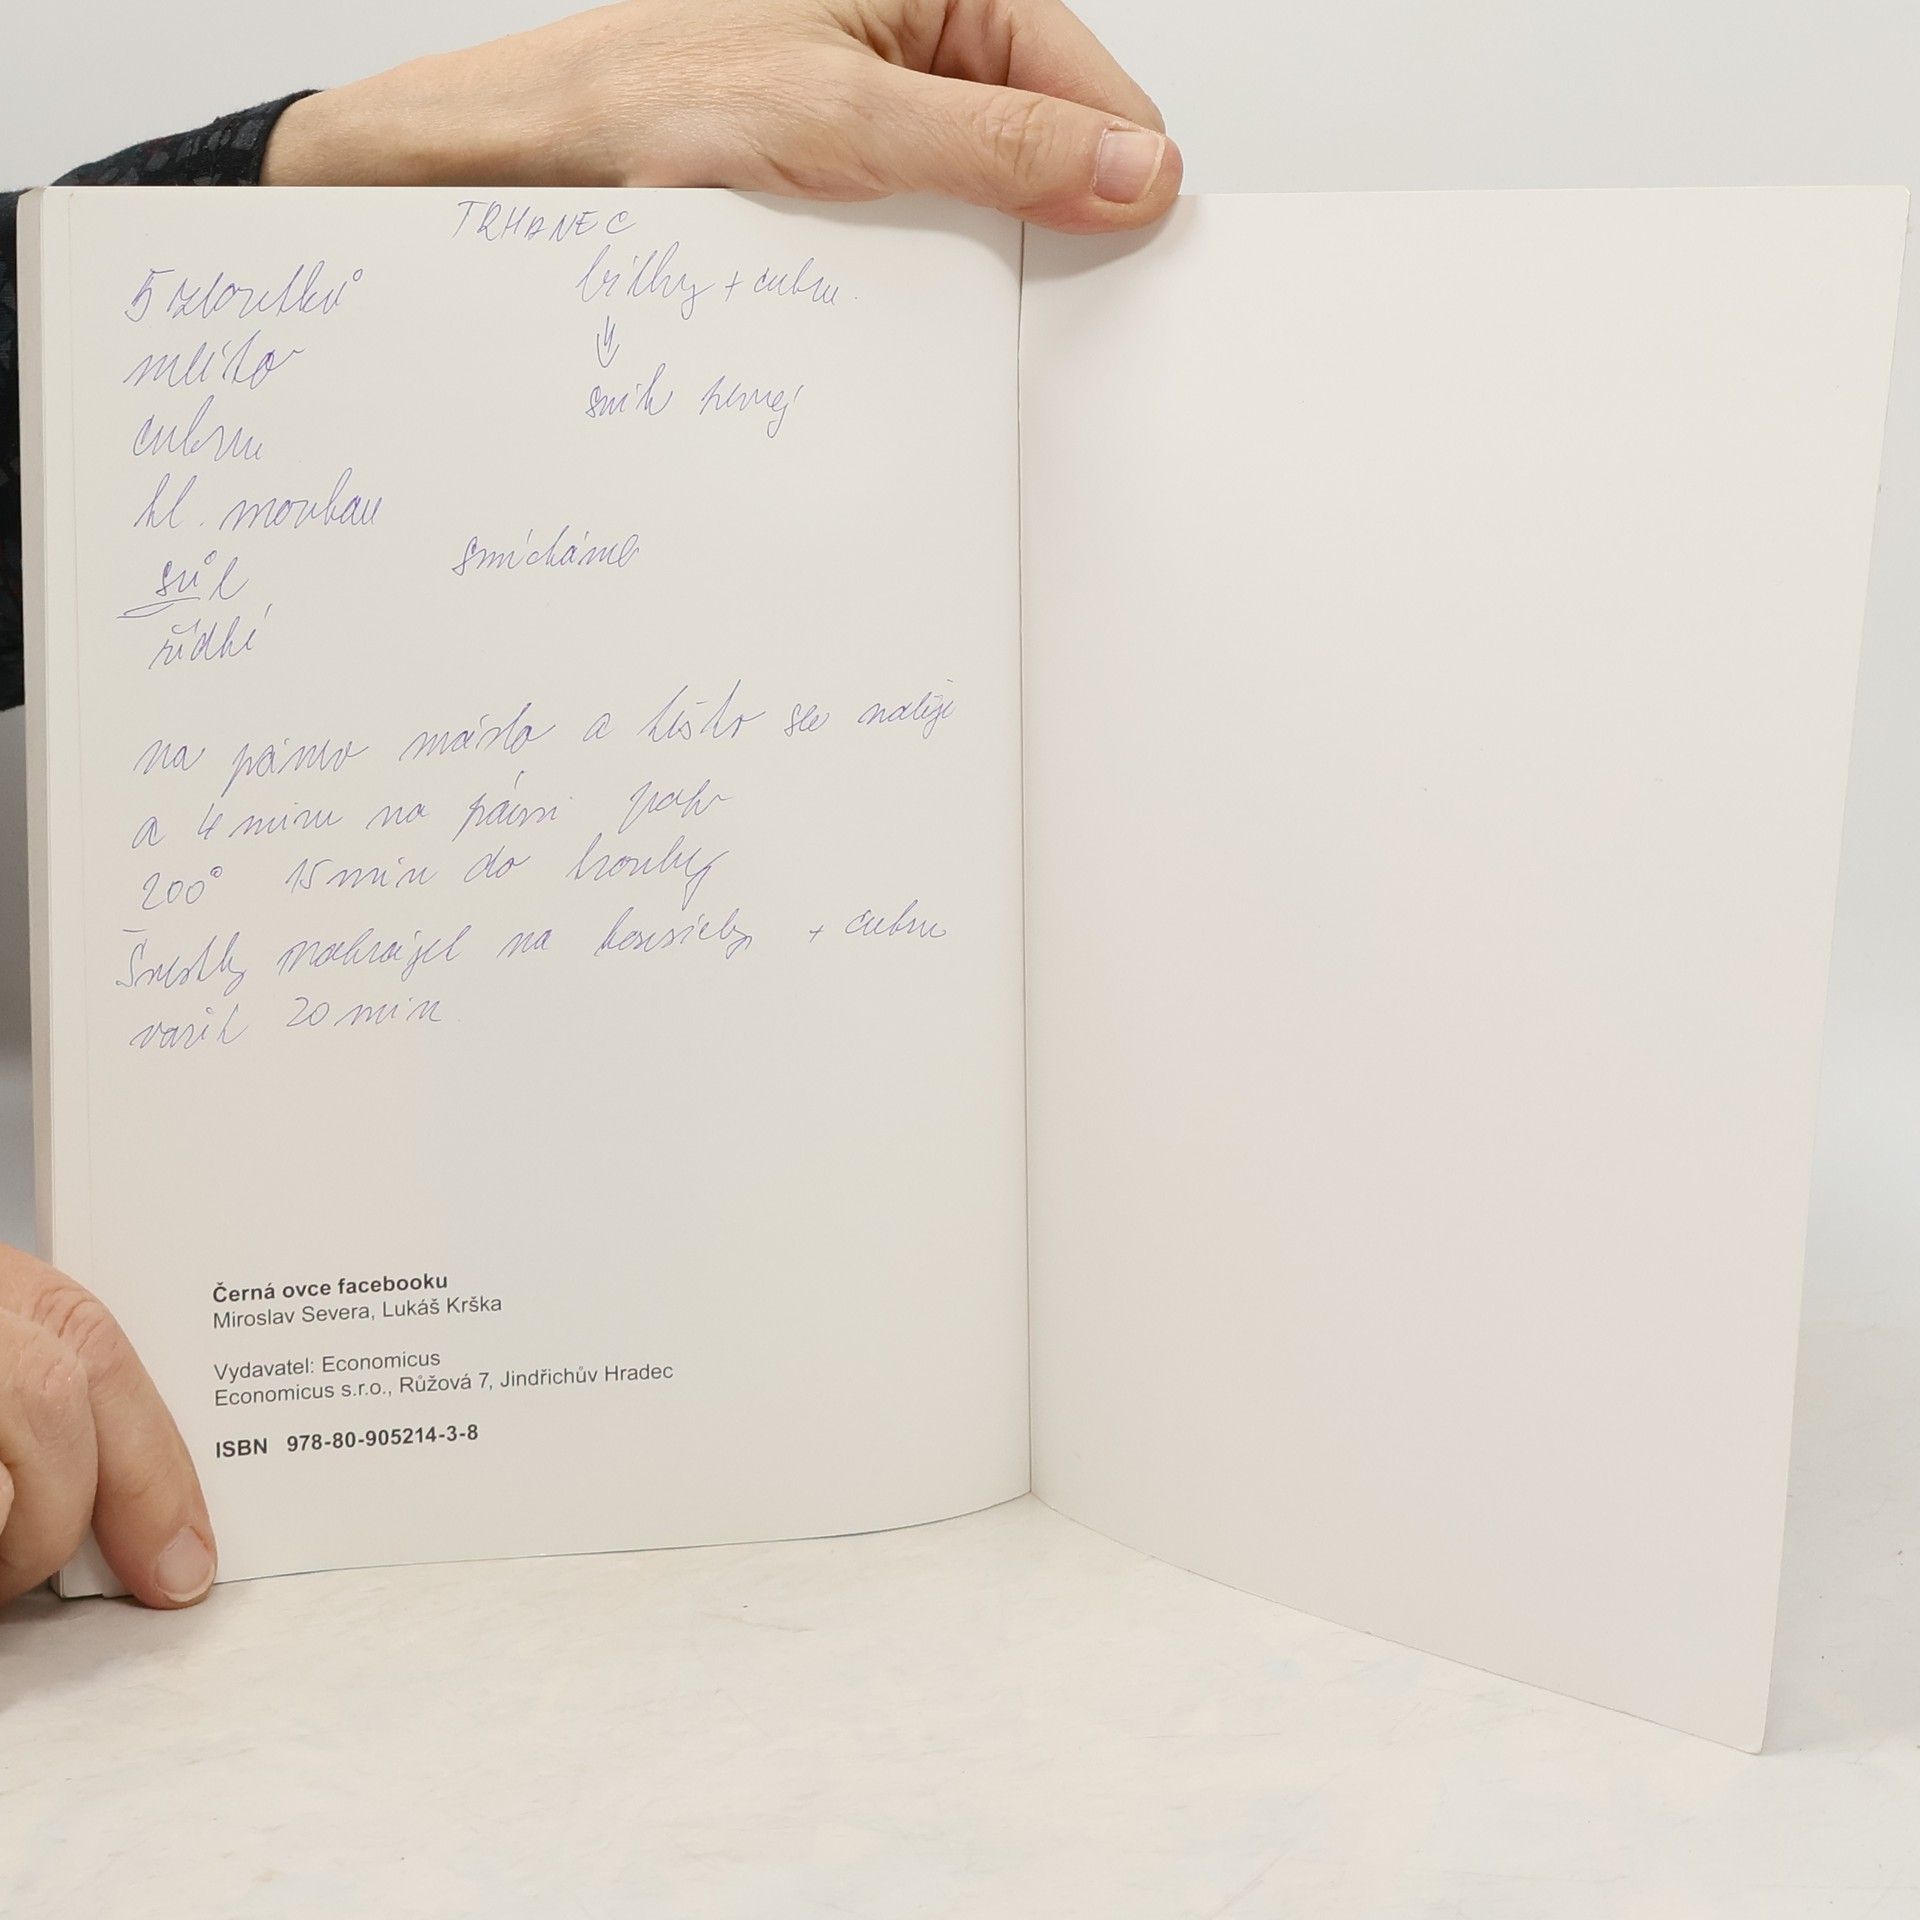 TRHANEC
5 žloutků
bílky + cukru.
mléko
sníh pevný
cukru
hl. moukau
sůl
smícháme
řídké
na pánev máslo a těsto se naleje
a 4 minu na pánvi pak
200° 15 min do trouby
Švestky nakrájet na kousíčky + cukru
vařit 20 min
Černá ovce facebooku
Miroslav Severa, Lukáš Krška
Vydavatel: Economicus
Economicus s.r.o., Růžová 7, Jindřichův Hradec
ISBN 978-80-905214-3-8